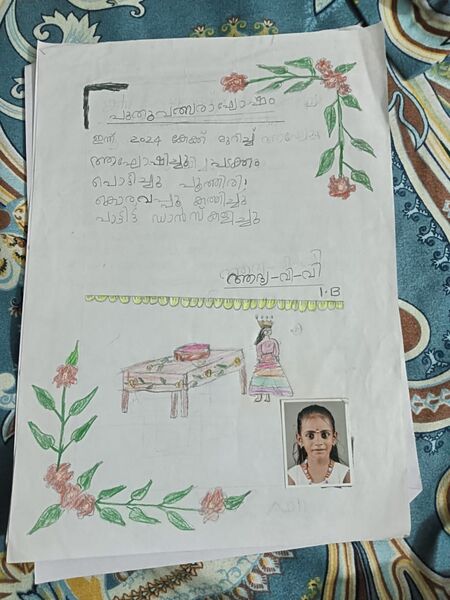 പുതുവത്സരാഘോഷം
ഇന്ന് 2024 കേക്ക് മുറിച്ച്
ആഘോഷിച്ചു പടക്കം
പൊട്ടിച്ചു പൂത്തിരി
കത്തിച്ചു
പാട്ടിട്ട് ഡാൻസ് കളിച്ചു
ആദ്യ-വി-വി
1.B